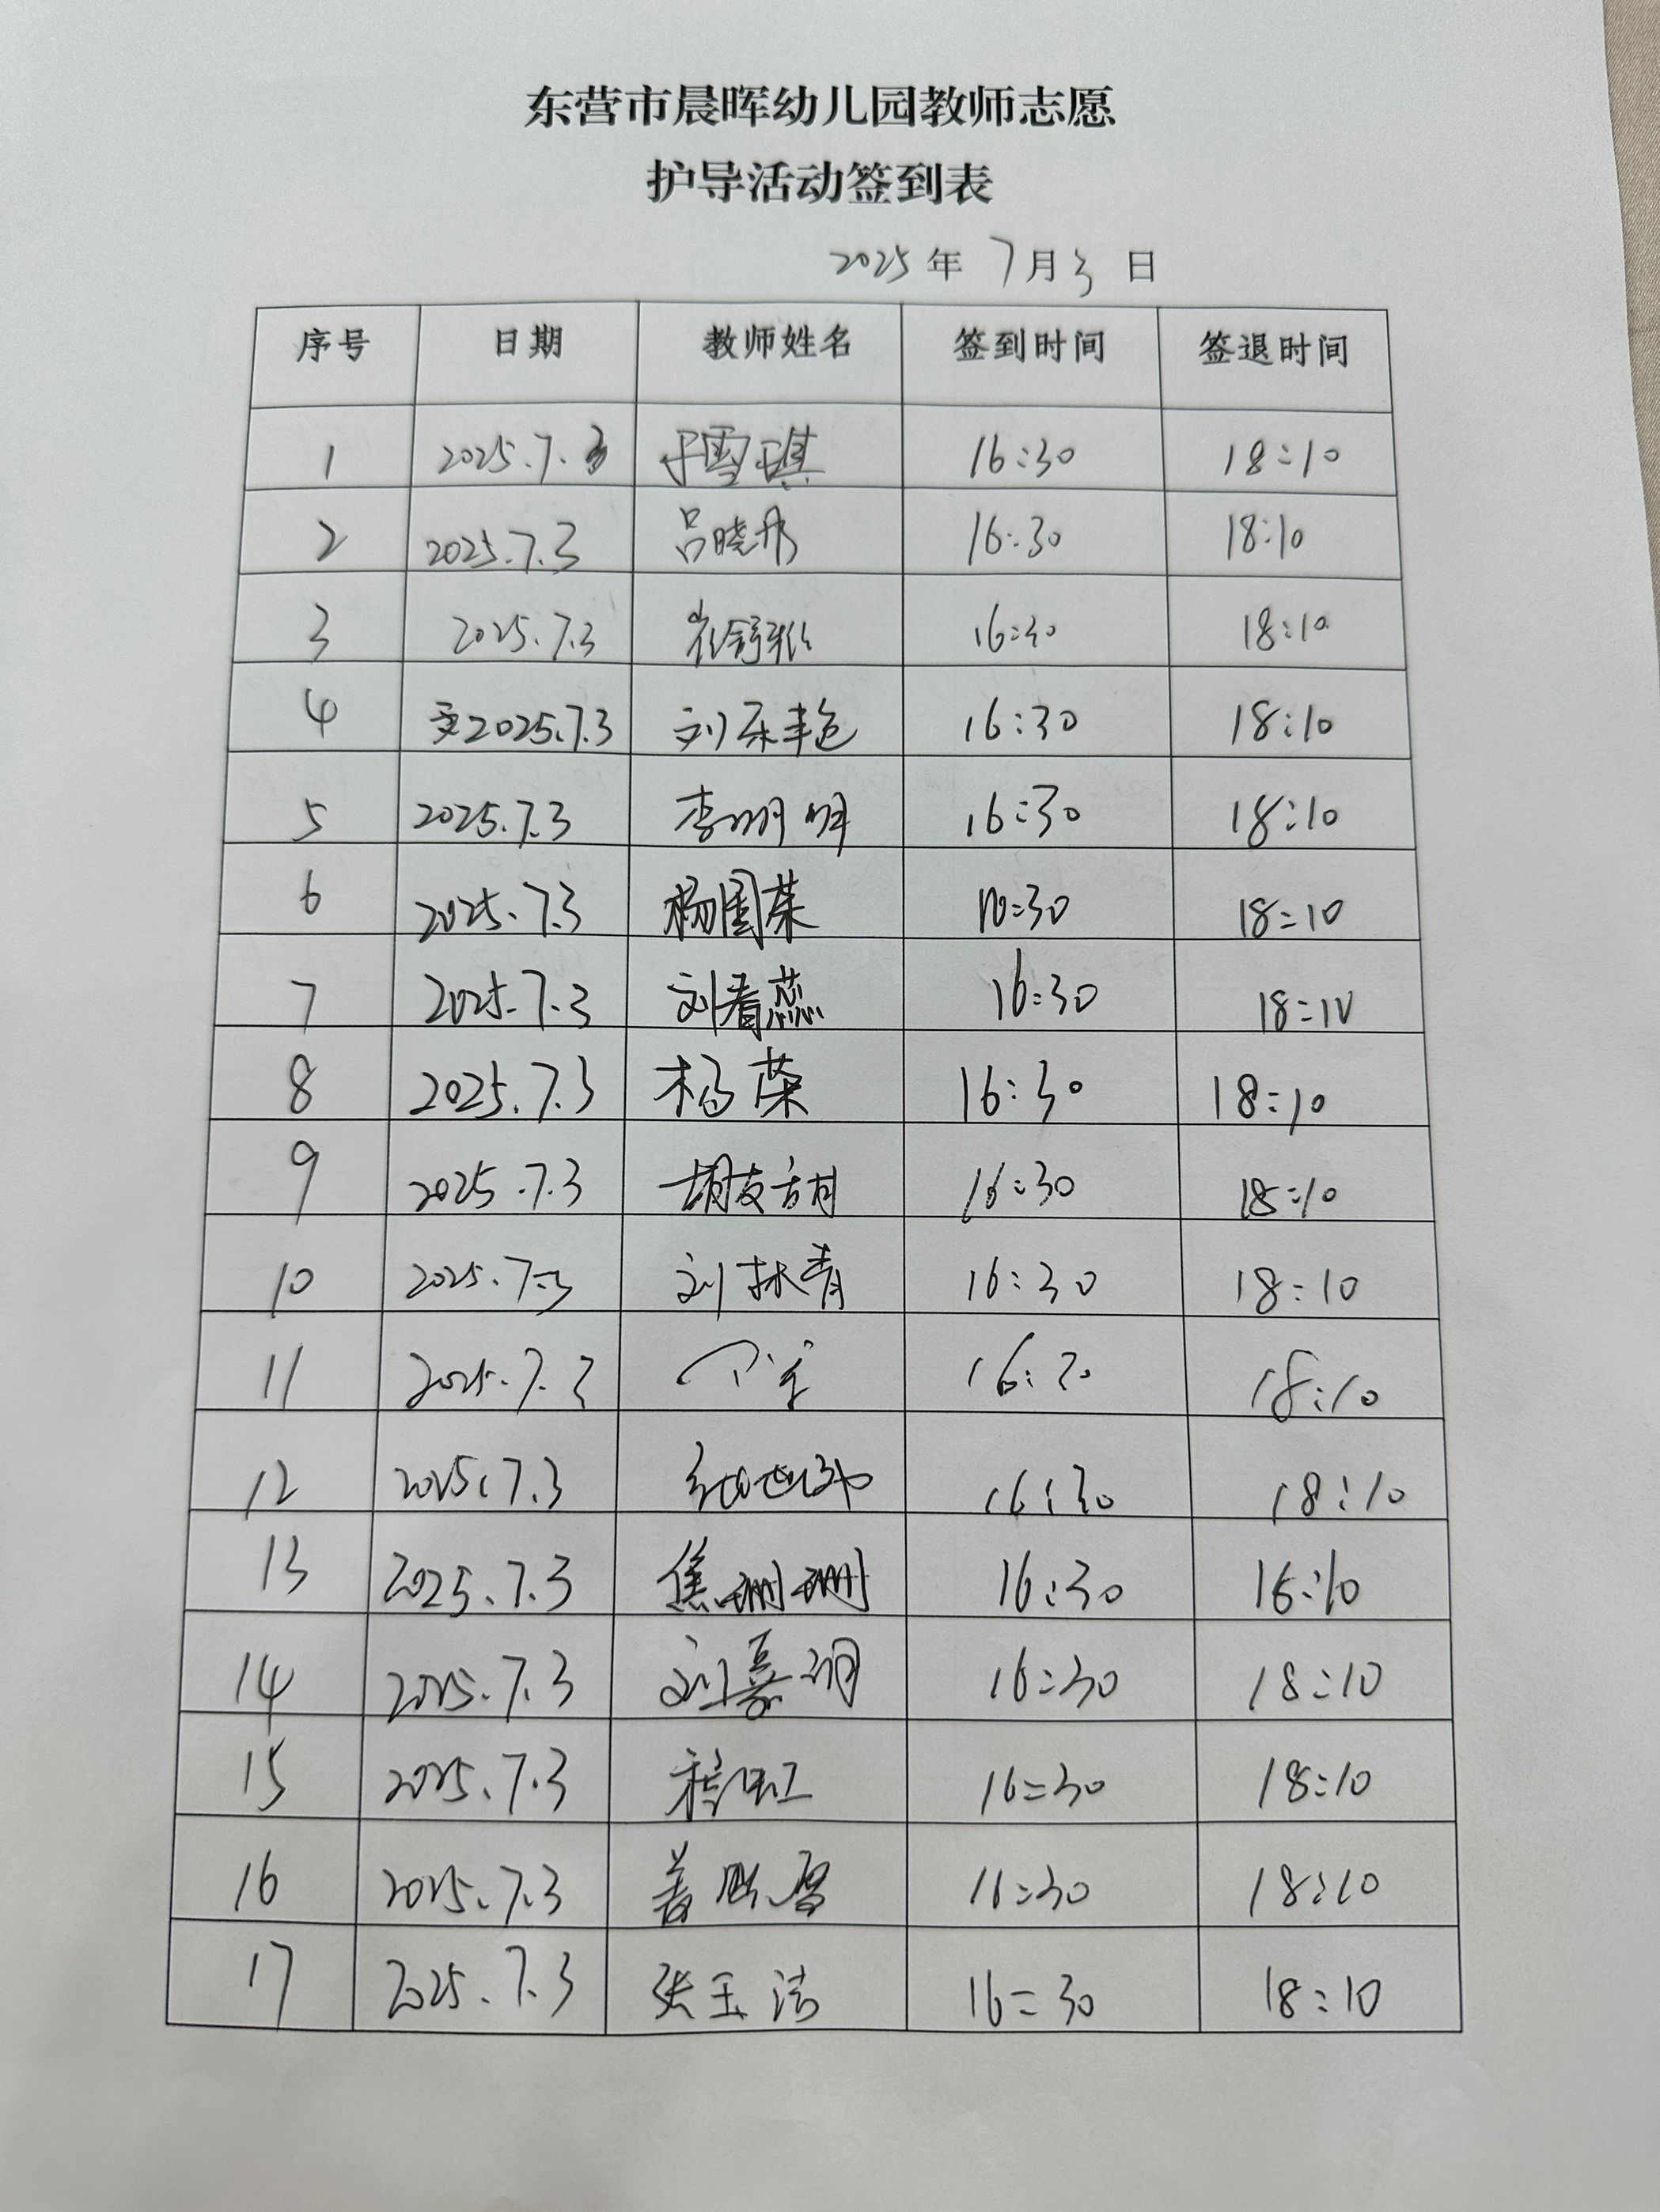 东营市晨晖幼儿园教师志愿
护导活动签到表
2025年 7月3日
序号 日期 教师姓名 签到时间 签退时间
1 2025.7.3 于雪琪 16:30 18:10
2 2025.7.3 吕晓彤 16:30 18:10
3 2025.7.3 崔舒雅 16:30 18:10
4 2025.7.3 刘乐艳 16:30 18:10
5 2025.7.3 李明明 16:30 18:10
6 2025.7.3 杨国荣 16:30 18:10
7 2025.7.3 刘春蕊 16:30 18:10
8 2025.7.3 杨荣 16:30 18:10
9 2025.7.3 16:30 18:10
10 2025.7.3 刘林青 16:30 18:10
11 2025.7.3 16:30 18:10
12 2025.7.3 16:30 18:10
13 2025.7.3 焦珊珊 16:30 16:10
14 2025.7.3 刘嘉 16:30 18:10
15 2025.7.3 程红 16:30 18:10
16 2025.7.3 姜 雪 16:30 18:10
17 2025.7.3 张玉洁 16:30 18:10